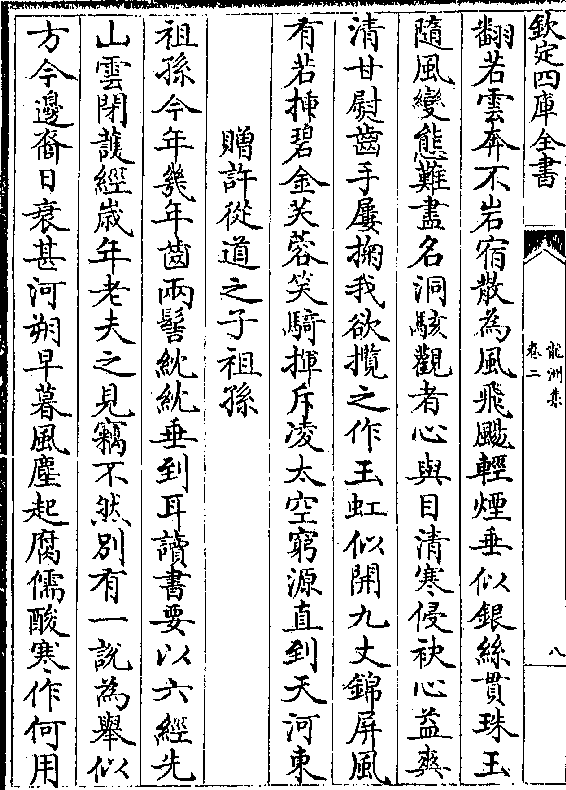 欽定四庫全書
龍洲集
卷二
八
翻若雲奔不岩宿散為風飛颺輕煙垂似銀絲貫珠玉
隨風變態難盡名洞駭觀者心與目清寒侵袂心益爽
清甘慰齒手屢掬我欲攬之作玉虹似開九丈錦屏風
有若揷碧金芙蓉笑騎揮斥凌太空窮源直到天河東
贈許從道之子祖孫
祖孫今年幾年箇兩髻紞紞垂到耳讀書要以六經先
山雲閉護經歲年老夫之見竊不然別有一說為舉似
方今邊裔日衰甚河朔早暮風塵起腐儒酸寒作何用